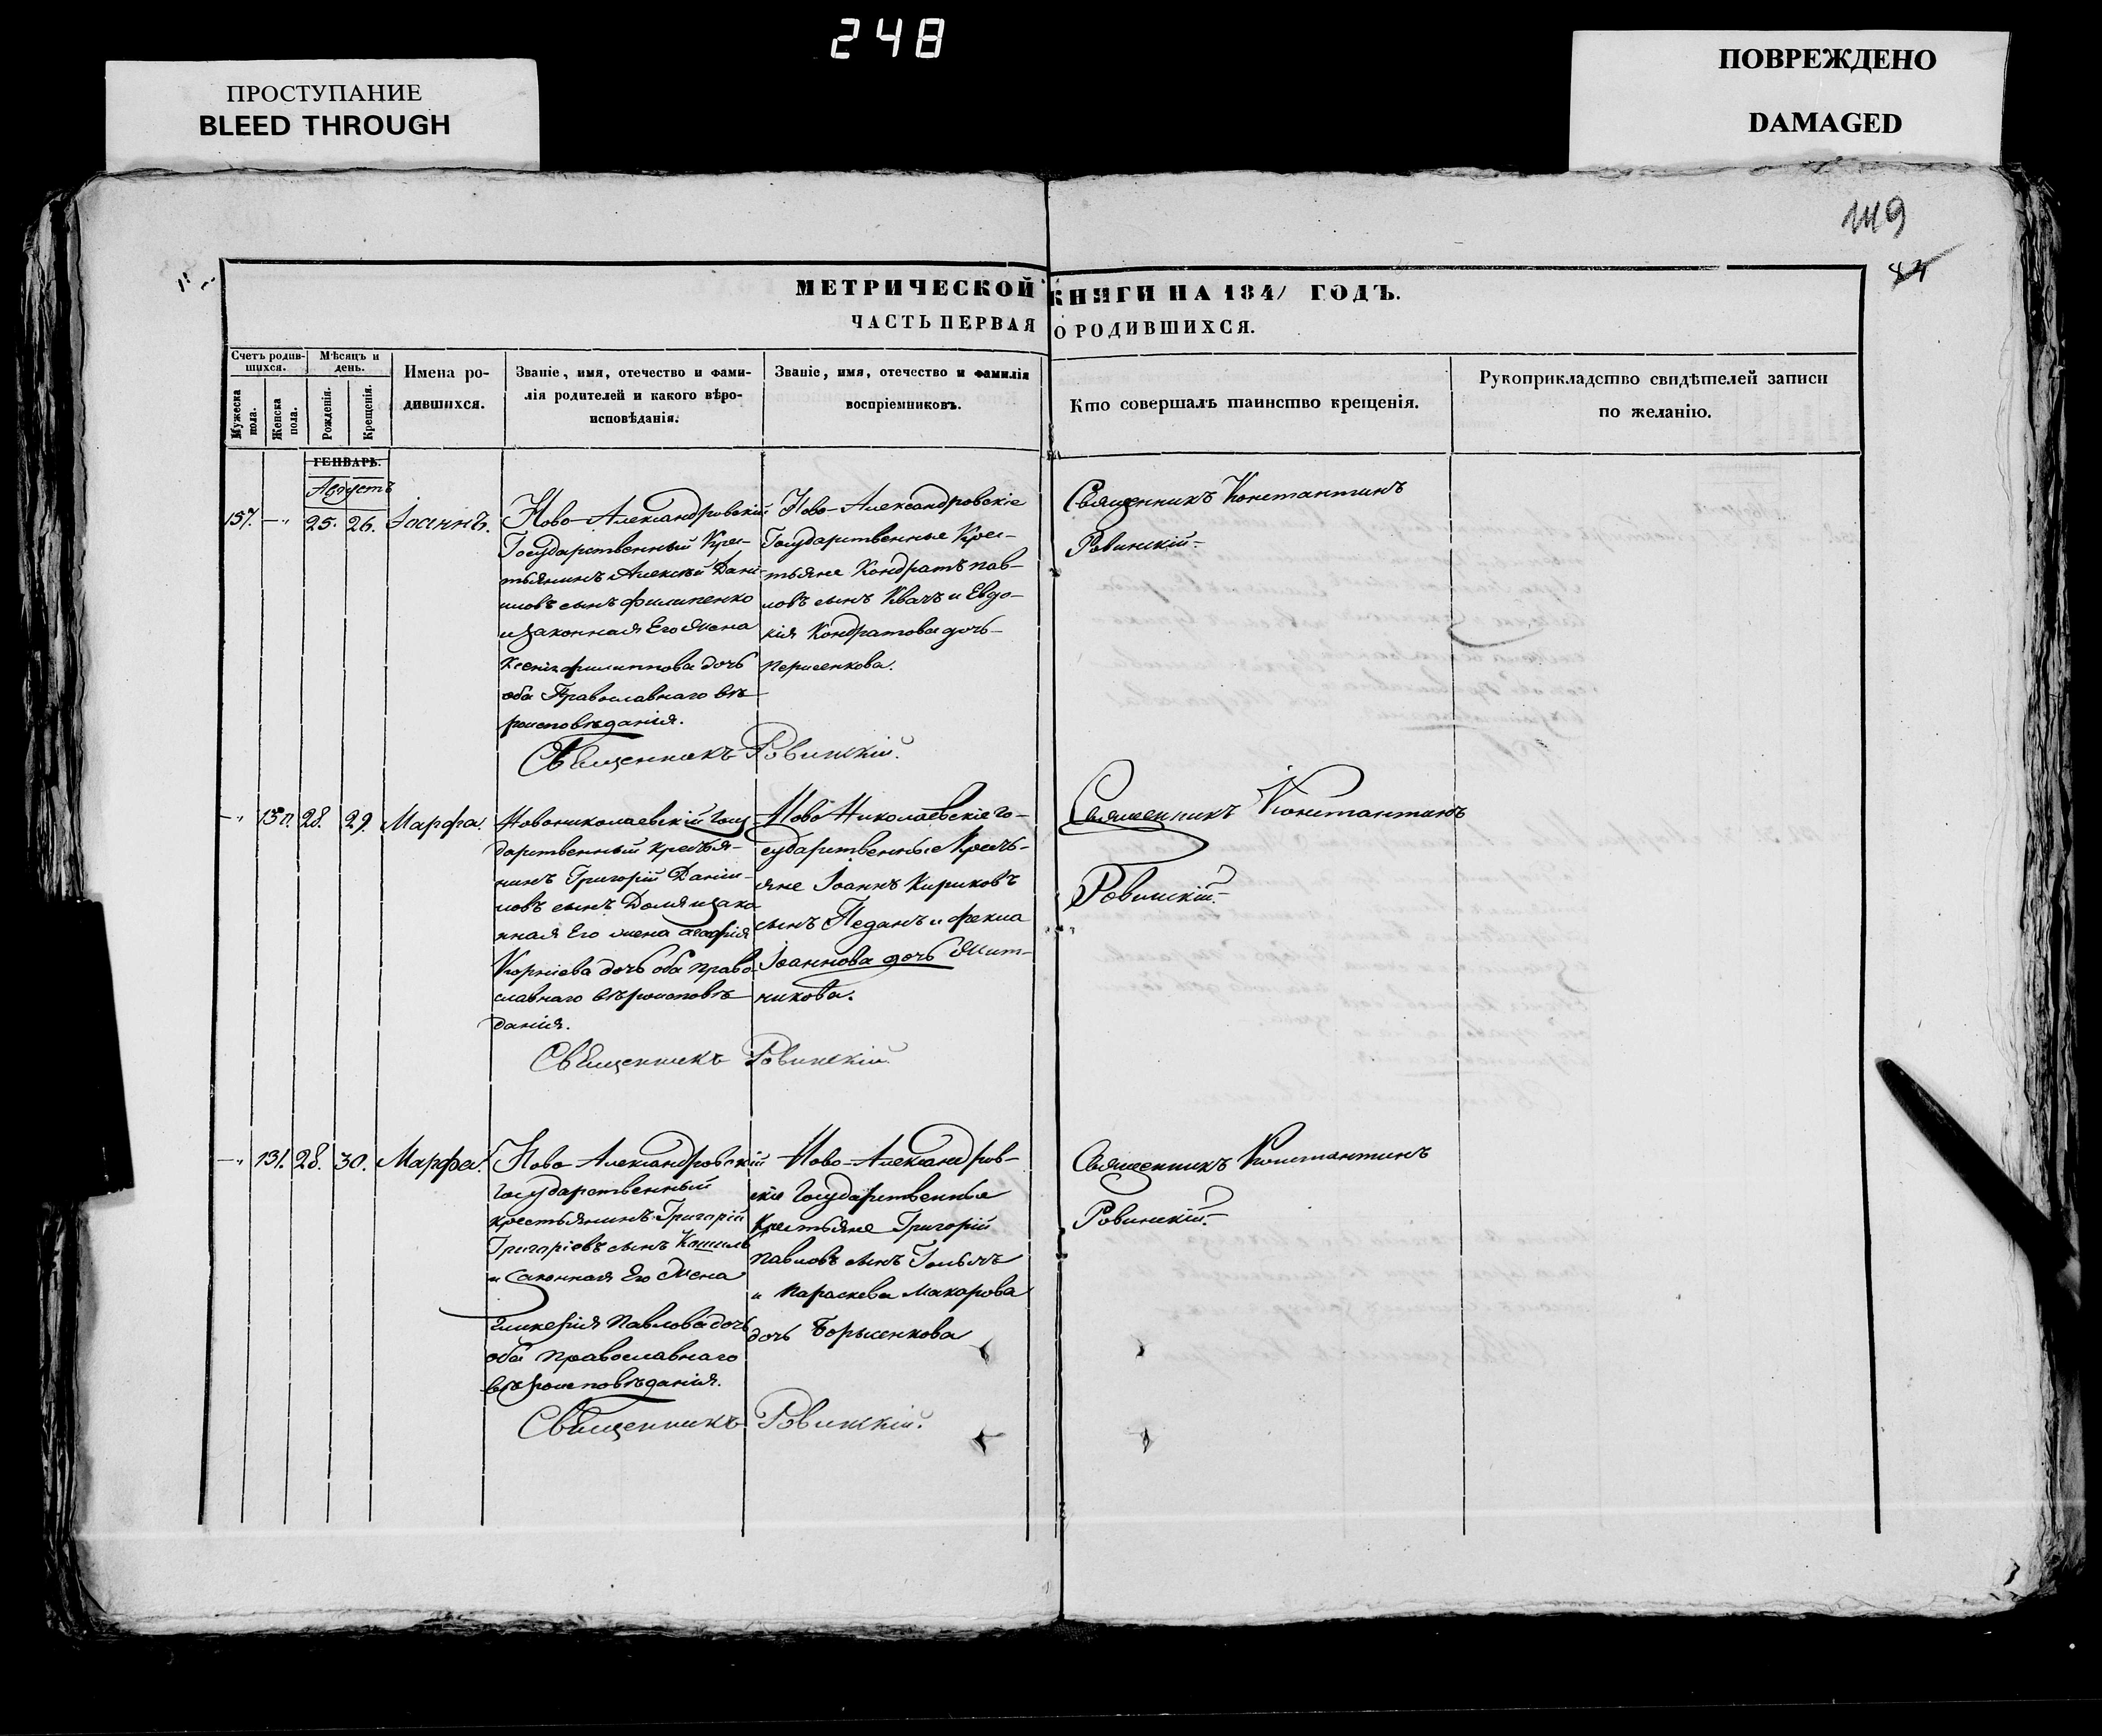 248
ПРОСТУПАНИЕ
BLEED THROUGH
ПОВРЕЖДЕНО
DAMAGED
119
84
МЕТРИЧЕСКОЙ КНИГИ НА 1841 ГОДЪ.
ЧАСТЬ ПЕРВАЯ О РОДИВШИХСЯ.
Счетъ родив-
шихся.
Мужеска
пола.
Женска
пола.
Мѣсяцъ и
день.
Рожденія.
Крещенія.
Имена ро-
дившихся.
Званіе, имя, отечество и фами-
лія родителей и какого вѣро-
исповѣданія.
Званіе, имя, отечество и фамилія
воспріемниковъ.
Кто совершалъ таинство крещенія.
Рукоприкладство свидѣтелей записи
по желанію.
ГЕНВАРЬ.
Августъ
157. 25. 26. Іоаннъ.
Ново-Александровскій
Государственный Крес-
тьянинъ Алексѣй Дани-
иловъ сынъ Филипенко
и законная Его жена
Ксенія Филиппова дочь
оба Православнаго вѣ-
роисповѣданія.
Ново-Александровскіе
Государственные Крес-
тьяне Кондратъ Пав-
ловъ сынъ Квачъ и Евдо-
кія Кондратова дочь
Священникъ Константинъ
Ровинскій.
Священникъ Ровинскій.
130. 28. 29. Марфа.
Новониколаевскій Госу
дарственный крестья-
нинъ Григорій Даніи-
ловъ сынъ Доля и зако
нная Его жена Агафія
Корніева дочь оба право-
славнаго вѣроисповѣ-
данія.
Ново Николаевскіе Го-
сударственные Кресть-
яне Іоаннъ Кириковъ
сынъ Педанъ и Фекла
Іоаннова дочь
никова.
Священникъ Константинъ
Ровинскій.
Священникъ Ровинскій.
131. 28. 30. Марфа.
Ново-Александровскій
Государственный
крестьянинъ Григорій
Григоріевъ сынъ Кошиль
и Законная Его Жена
Гликерія Павлова дочь
оба православнаго
вѣроисповѣданія.
Ново-Александров-
скіе Государственные
Крестьяне Григорій
Павловъ сынъ
и Параскева Макарова
дочь Борысенкова
Священникъ Константинъ
Ровинскій.
Священникъ Ровинскій.